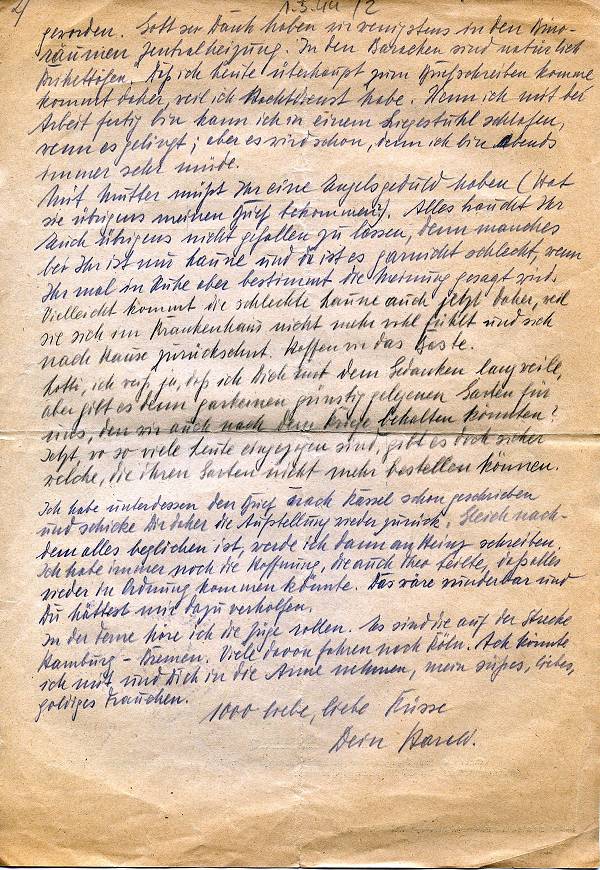 4
1.3.44 / 2
geworden. Gott sei Dank haben wir wenigstens in den Büro-
räumen Zentralheizung. In den Baracken sind natürlich
Brikettöfen. Daß ich heute überhaupt zum Briefschreiben komme
kommt daher, weil ich Nachtdienst habe. Wenn ich mit der
Arbeit fertig bin kann ich in einem Liegestuhl schlafen,
wenn es gelingt; aber es wird schon, denn ich bin abends
immer sehr müde.
Mit Mutter müßt Ihr eine Engelsgeduld haben (Hat
sie übrigens meinen Brief bekommen?). Alles braucht Ihr
Euch übrigens nicht gefallen zu lassen, denn manches
bei Ihr ist nur Laune und da ist es garnicht schlecht, wenn
Ihr mal in Ruhe aber bestimmt die Meinung gesagt wird.
Vielleicht kommt die schlechte Laune auch jetzt daher, weil
sie sich im Krankenhaus nicht mehr wohl fühlt und sich
nach Hause zurücksehnt. Hoffen wir das Beste.
Lotti, ich weiß ja, daß ich Dich mit dem Gedanken langweile,
aber gibt es denn gar keinen günstig gelegenen Garten für
uns, den wir auch nach dem Kriege behalten könnten?
Jetzt, wo so viele Leute eingezogen sind, gibt es doch sicher
welche, die ihren Garten nicht mehr bestellen können.
Ich habe unterdessen den Brief nach Kassel schon geschrieben
und schicke Dir daher die Aufstellung wieder zurück. Gleich nach-
dem alles beglichen ist, werde ich dann an Heinz schreiben.
Ich habe immer noch die Hoffnung, die auch Theo teilte, daß alles
wieder in Ordnung kommen könnte. Das wäre wunderbar und
Du hättest mir dazu verholfen.
In der Ferne höre ich die Züge rollen. Es sind die auf der Strecke
Hamburg - Bremen. Viele davon fahren nach Köln. Ach könnte
ich mit und Dich in die Arme nehmen, mein süßes, liebes,
goldiges Frauchen.
1000 liebe, liebe Küsse
Dein